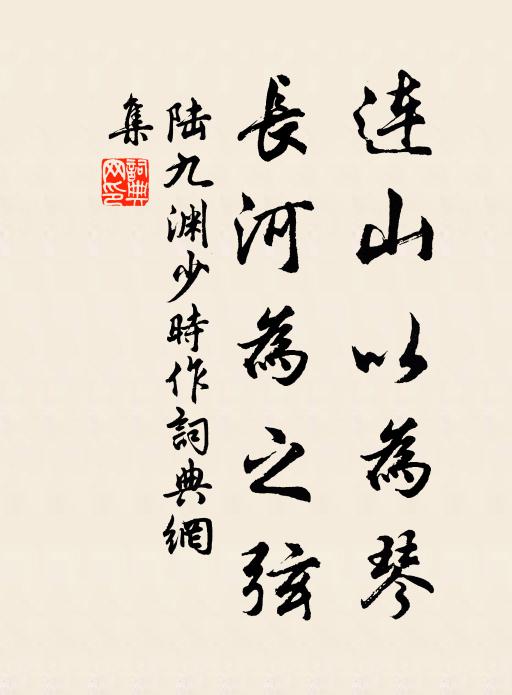 連山以為琴
長河為之弦
陆九渊少時作詞典網
集
詞典網印